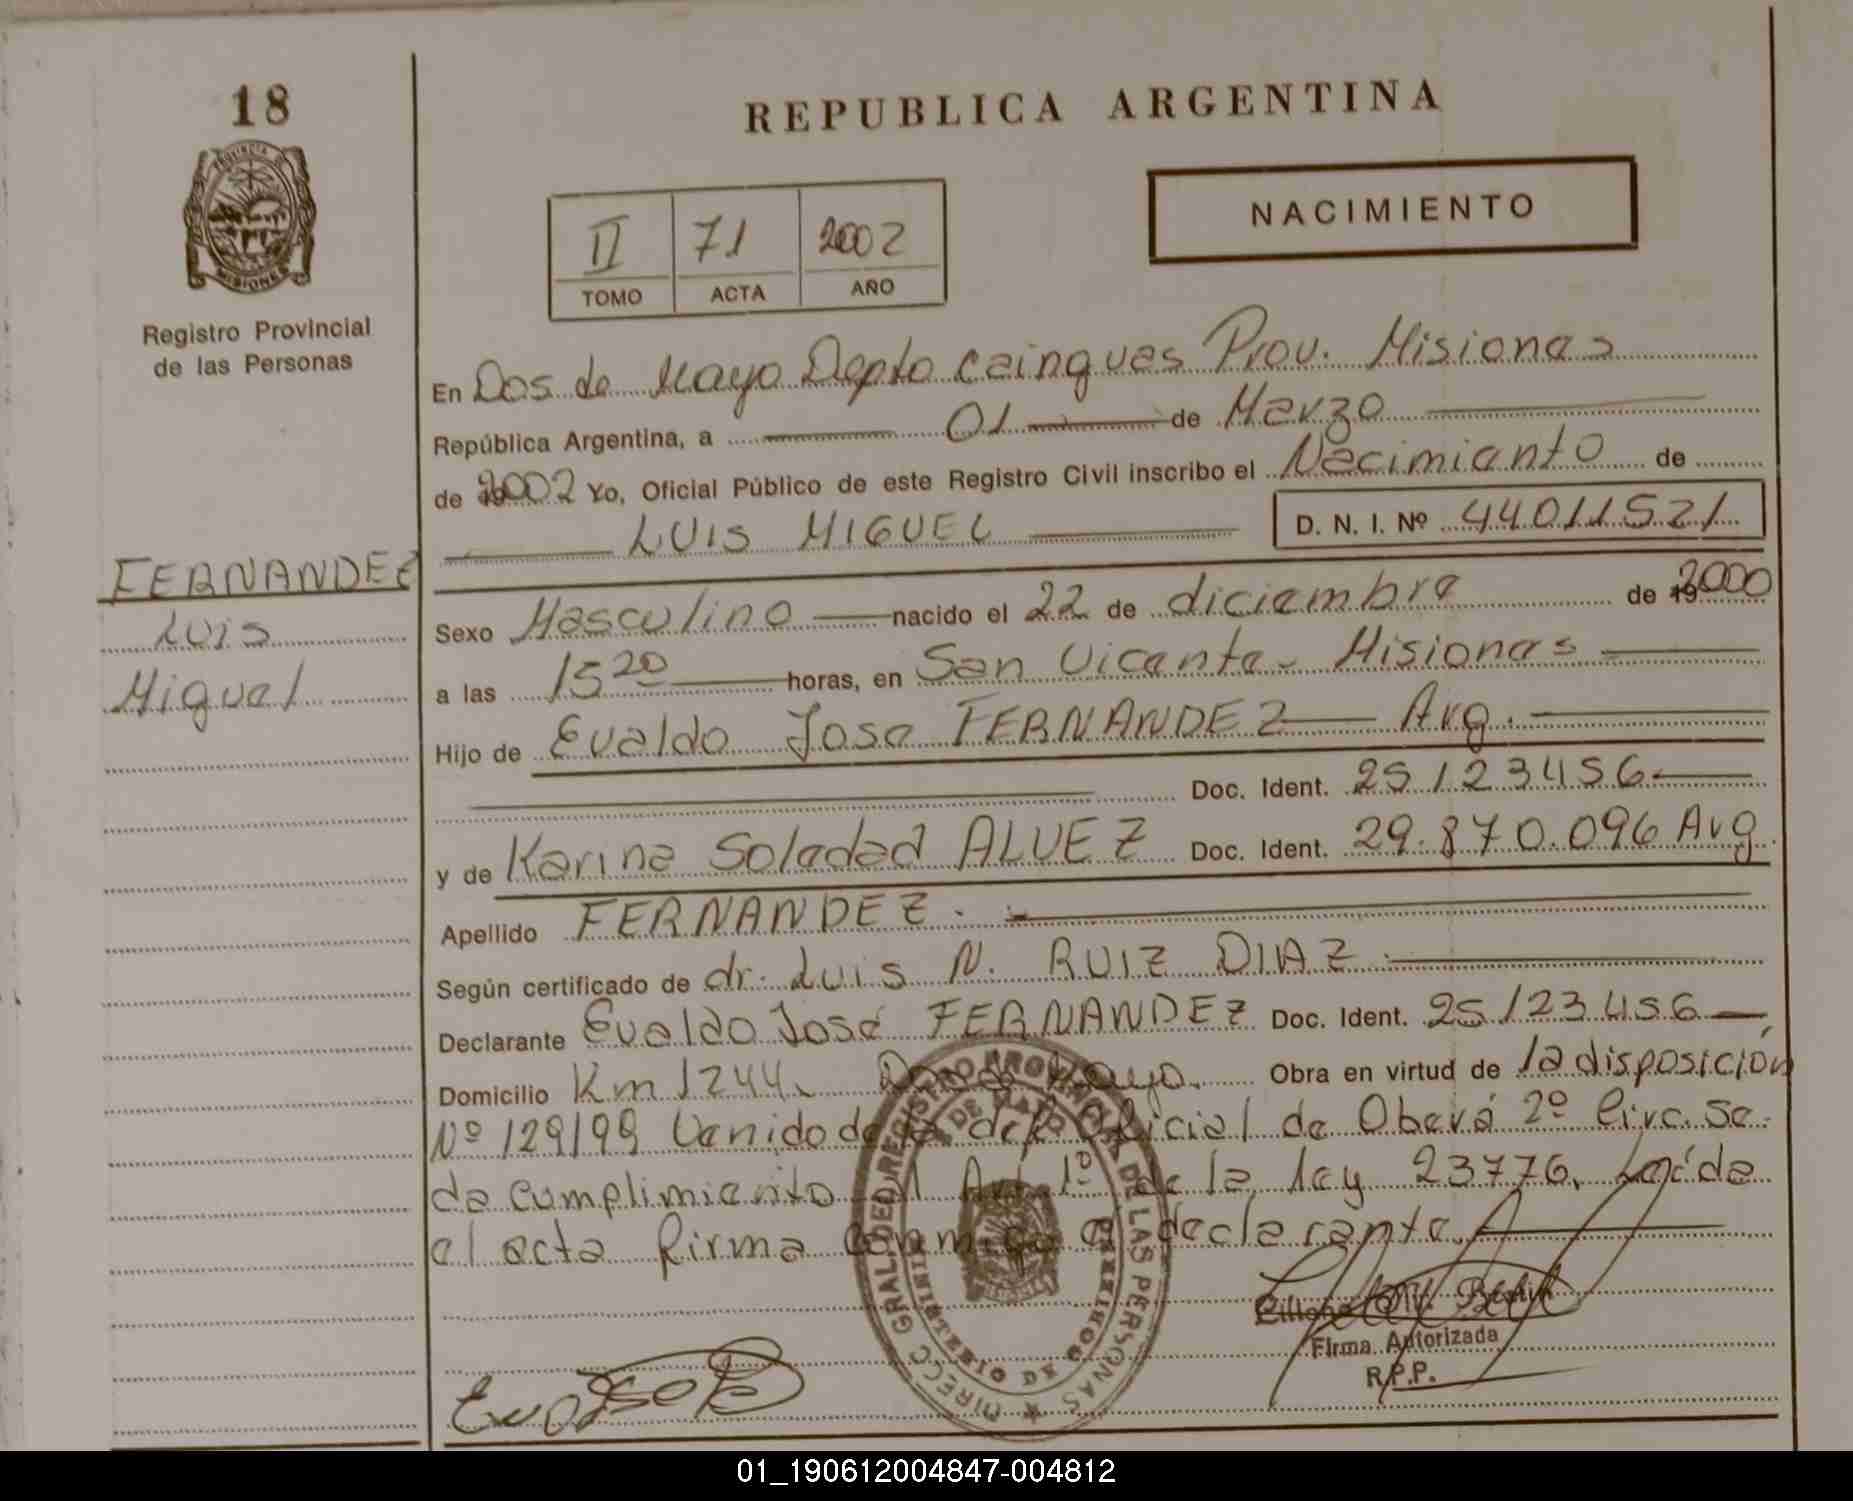 18
REPUBLICA ARGENTINA
NACIMIENTO
II 71 2002
TOMO ACTA AÑO
PROVINCIA DE
MISIONES
Registro Provincial
de las Personas
En Dos de Mayo Depto Cainguas Prov. Misiones
República Argentina, a 01 de Marzo
de 2002 Yo, Oficial Público de este Registro Civil inscribo el Nacimiento de
LUIS MIGUEL D. N. I. Nº 44011521
FERNANDEZ
Luis
Miguel
Sexo Masculino nacido el 22 de diciembre de 2000
a las 15 20 horas, en San Vicente - Misiones
Hijo de Evaldo Jose FERNANDEZ Arg.
Doc. Ident. 25123456
y de Karina Soledad ALVEZ Doc. Ident. 29.870.096 Arg.
Apellido FERNANDEZ.
Según certificado de dr. Luis N. RUIZ DIAZ
Declarante Evaldo José FERNANDEZ Doc. Ident. 25123456
Domicilio Km 1244. Dos de Mayo. Obra en virtud de la disposición
Nº 129/99 Venido de la del. Oficial de Oberá 2º Circ. se
da cumplimiento al Art 1º de la ley 23776. Leída
el acta firma conmigo el declarante.
DIRECC. GRAL DEL REGISTRO PROVINCIAL DE LAS PERSONAS
DE MAYO
MINISTERIO DE GOBIERNO
Firma Autorizada
R.P.P.
01_190612004847-004812